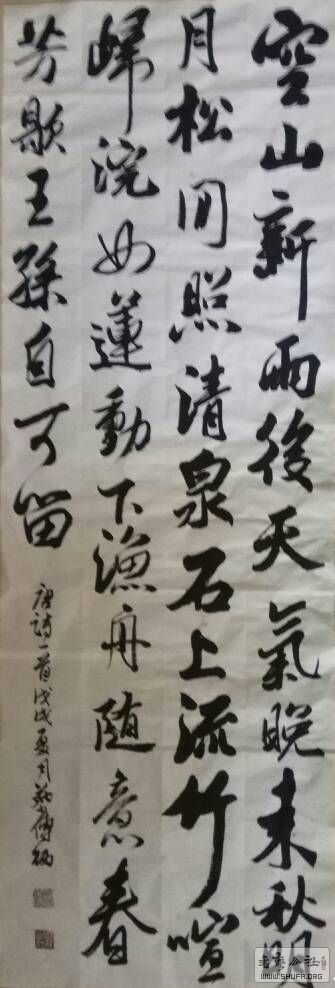 空山新雨後天氣晚来秋明
月松间照清泉石上流竹喧
歸浣女蓮動下漁舟随意春
芳歇王孫自可留
唐詩一首戊戌夏月
书艺公社
WWW.SHUFA.ORG